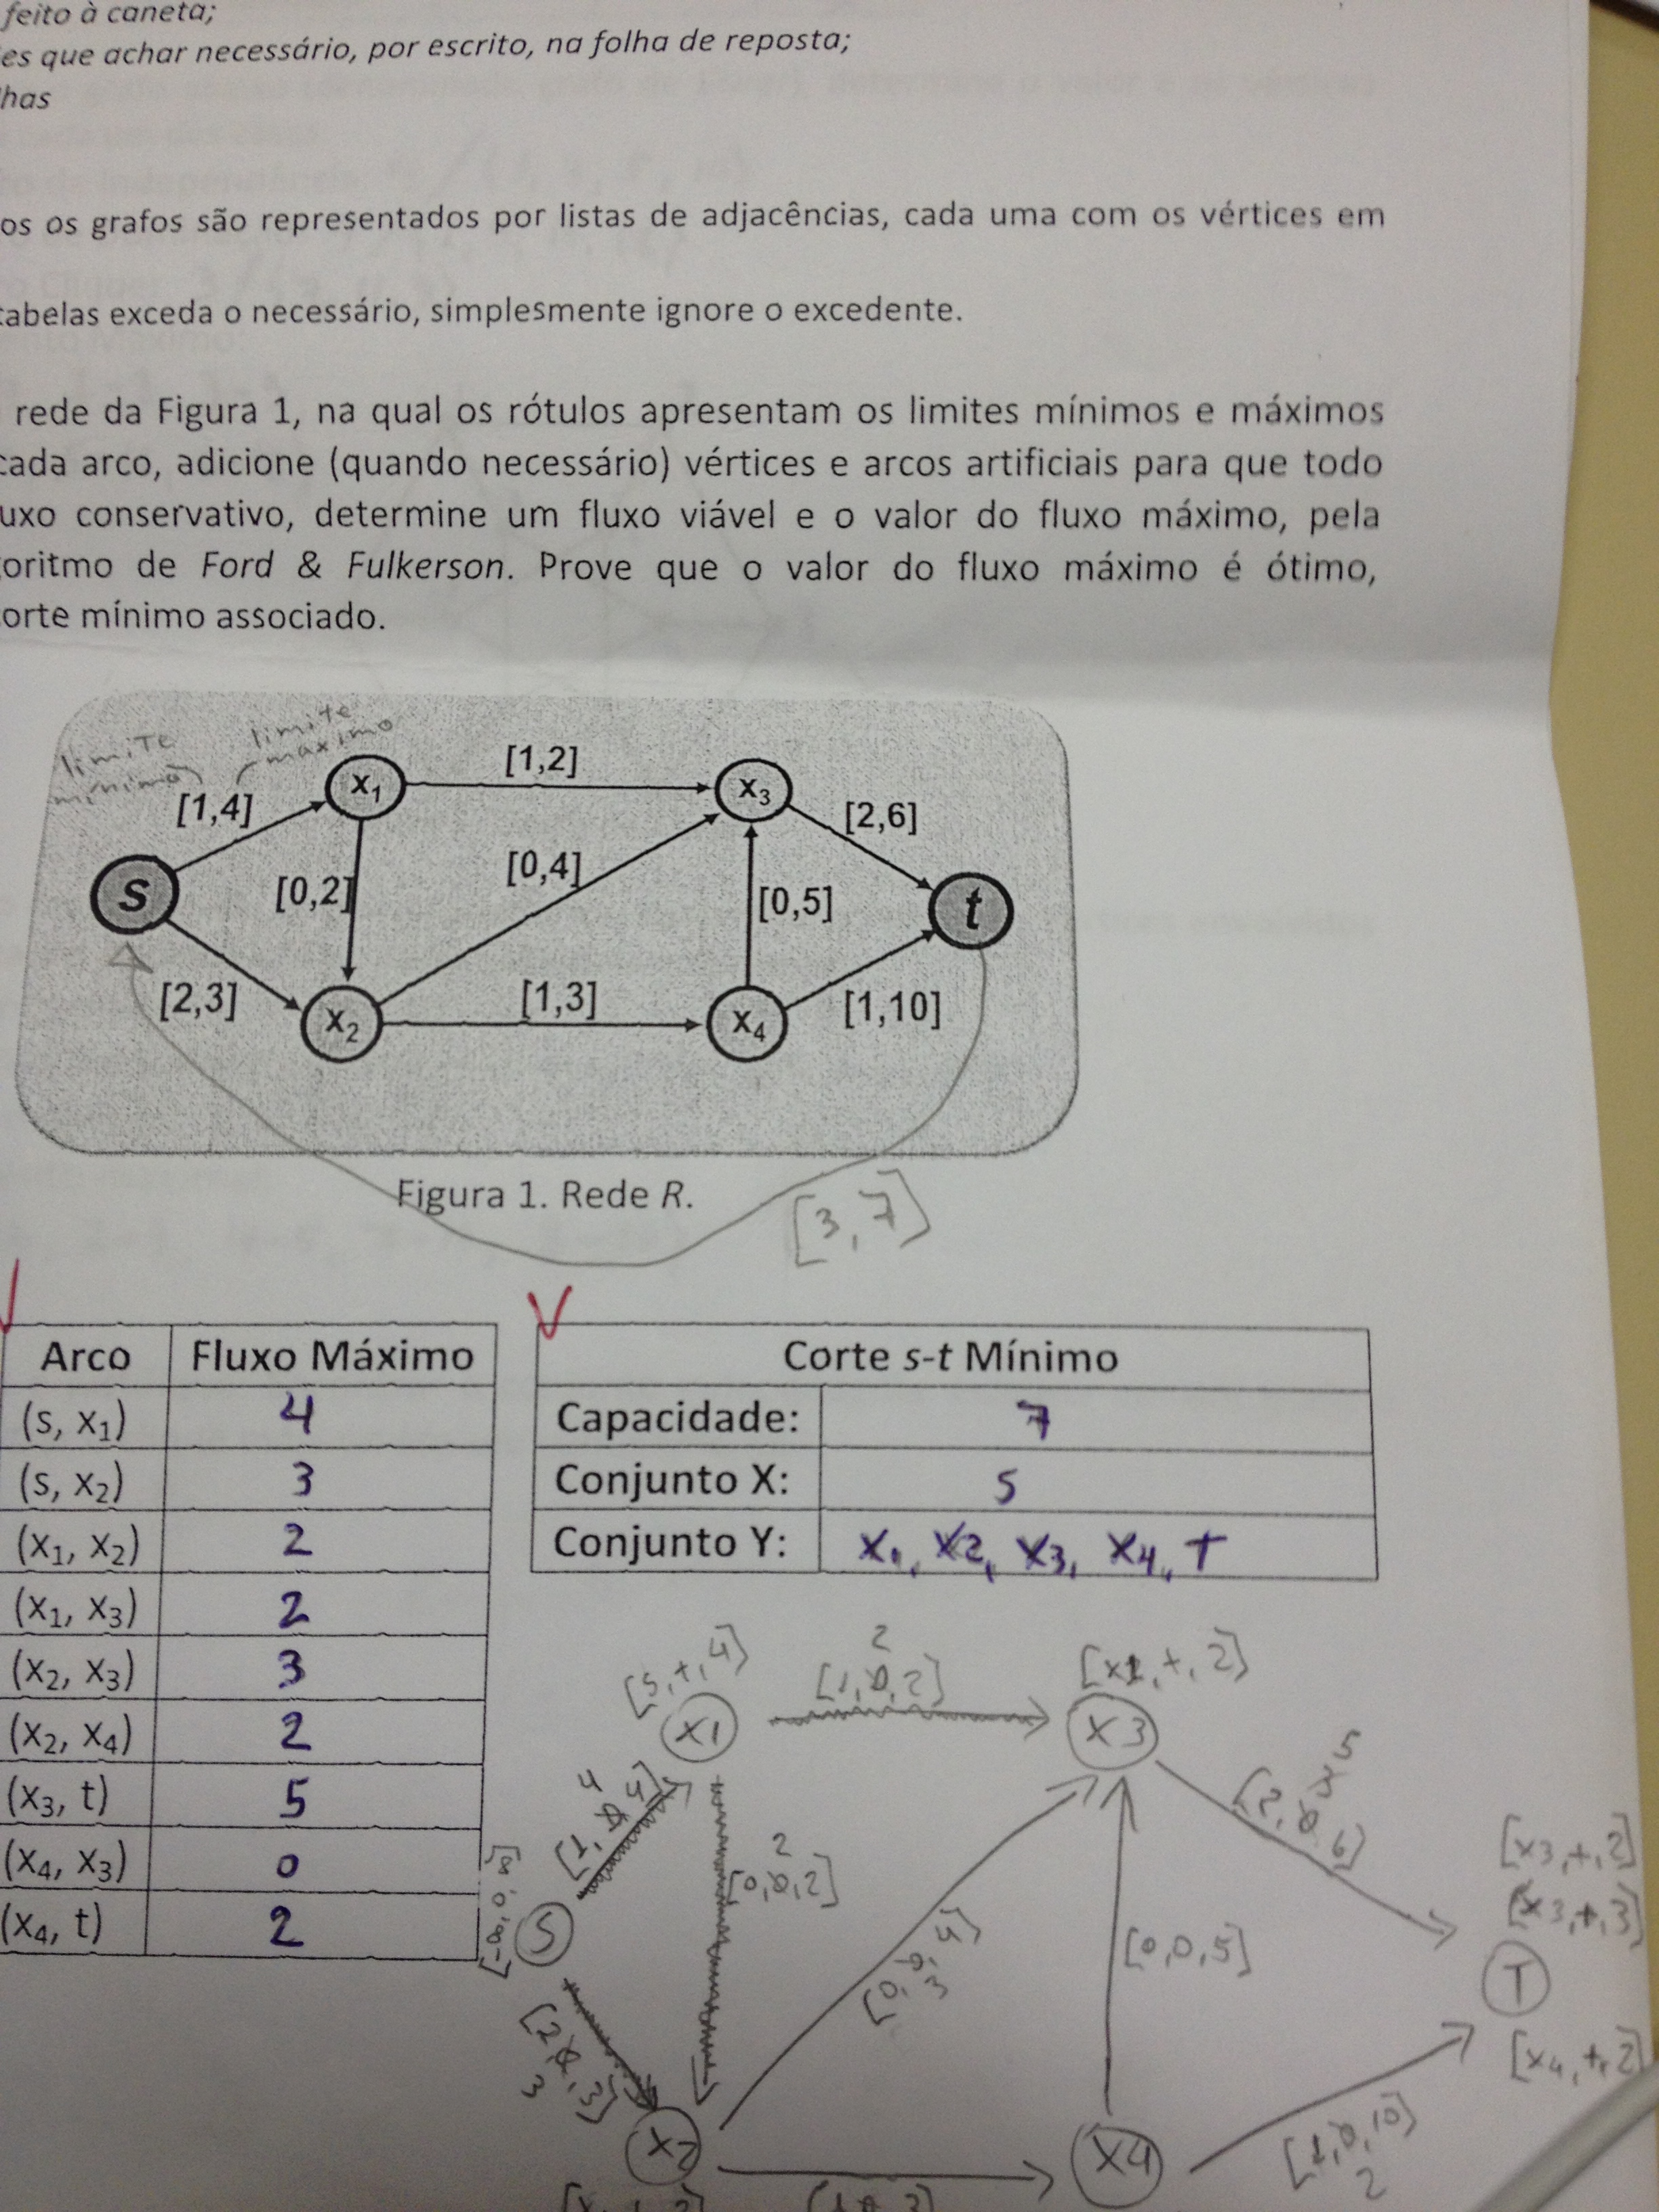 feito à caneta;
es que achar necessário, por escrito, na folha de reposta;
has
os os grafos são representados por listas de adjacências, cada uma com os vértices em
tabelas exceda o necessário, simplesmente ignore o excedente.
rede da Figura 1, na qual os rótulos apresentam os limites mínimos e máximos
cada arco, adicione (quando necessário) vértices e arcos artificiais para que todo
uxo conservativo, determine um fluxo viável e o valor do fluxo máximo, pela
oritmo de Ford & Fulkerson. Prove que o valor do fluxo máximo é ótimo,
orte mínimo associado.
limite mínimo
limite máximo
[1,4]
x1
[1,2]
x3
[2,6]
s
[0,2]
[0,4]
[0,5]
t
[2,3]
x2
[1,3]
x4
[1,10]
Figura 1. Rede R.
[3,7]
Arco Fluxo Máximo
(s, x1) 4
(s, x2) 3
(x1, x2) 2
(x1, x3) 2
(x2, x3) 3
(x2, x4) 2
(x3, t) 5
(x4, x3) 0
(x4, t) 2
Corte s-t Mínimo
Capacidade: 7
Conjunto X: S
Conjunto Y: x1, x2, x3, x4, T
[S,+,4]
2
[1,0,2]
[x1,+,2]
X1
X3
4
[1,0,4]
2
[0,0,2]
5
3
[2,0,6]
[x3,+,2]
[x3,+,3]
S
[0,0,4]
3
[0,0,5]
T
[x4,+,2]
[2,0,3]
3
X2
X4
[1,0,10]
2